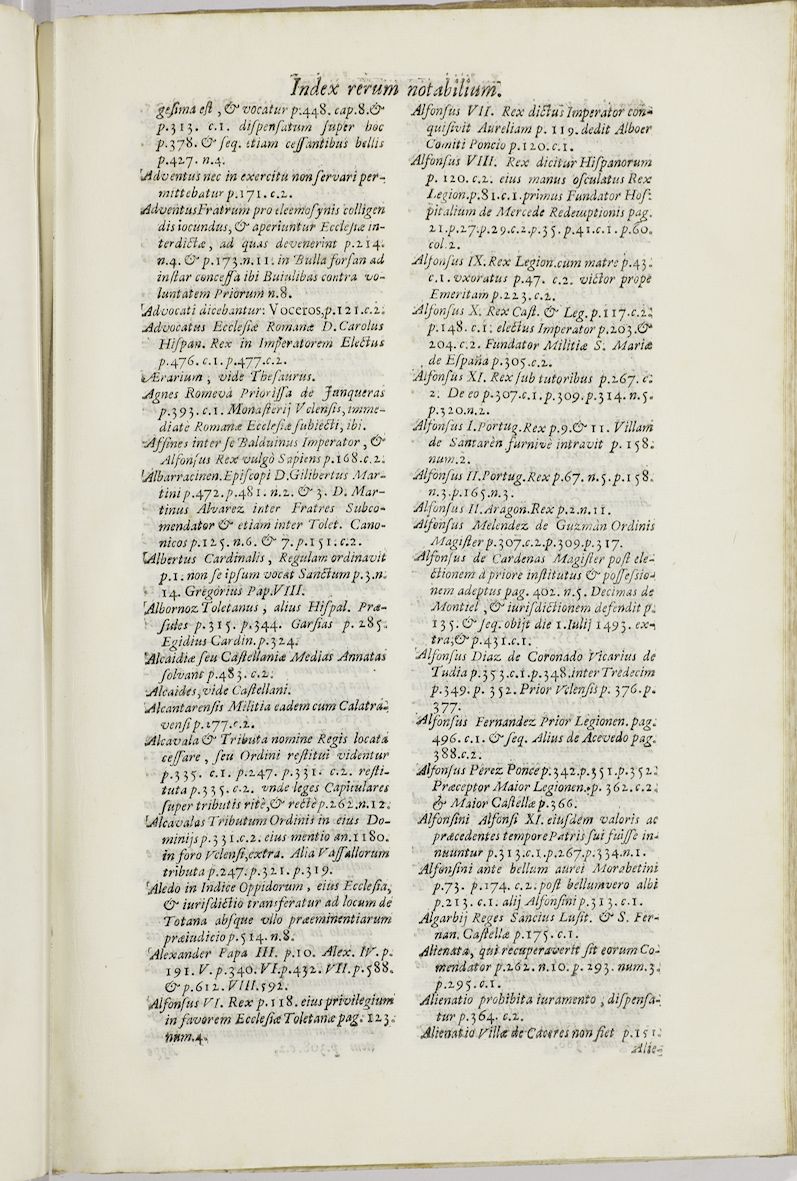 Index rerum notabilium.
gesima est, & vocatur p.448. cap.8.&
p.313. c.1. dispensatum super hoc
p.378. & seq. etiam cessantibus bellis
p.427. n.4.
Adventus nec in exercitu non servari per-
mittebatur p.171. c.2.
Adventus Fratrum pro eleemosynis colligen
dis iocundus, & aperiuntur Ecclesiæ in-
terdictæ, ad quas devenerint p.214.
n.4. & p.173.n.11. in Bulla forsan ad
instar concessa ibi Buiulibas contra vo-
luntatem Priorum n.8.
Advocati dicebantur: Voceros, p.121.c.2.
Advocatus Ecclesiæ Romanæ D. Carolus
Hispan. Rex in Imperatorem Electus
p.476. c.1. p.477.c.2.
Ærarium, vide Thesaurus.
Agnes Romeva Priorissa de Junqueras
p.393. c.1. Monasterij Velensis, imme-
diate Romanæ Ecclesiæ subiecti, ibi.
Affines inter se Balduinus Imperator, &
Alfonsus Rex vulgò Sapiens p.168.c.2.
Albarracinen. Episcopi D. Gilibertus Mar-
tini p.472. p.481. n.2. & 3. D. Mar-
tinus Alvarez inter Fratres Subco-
mendator & etiam inter Tolet. Cano-
nicos p.125. n.6. & 7. p.151. c.2.
Albertus Cardinalis, Regulam ordinavit
p.1. non se ipsum vocat Sanctum p.3.n.
14. Gregorius Pap. VIII.
Albornoz Toletanus, alius Hispal. Præ-
sules p.315. p.344. Garsias p. 285.
Egidius Cardin. p.324.
Alcaidiæ seu Castellaniæ Medias Annatas
solvant p.483. c.2.
Alcaides, vide Castellani.
Alcantarensis Militia eadem cum Calatra-
vensi p.177.c.2.
Alcavala & Tributa nomine Regis locata
cessare, seu Ordini restitui videntur
p.335. c.1. p.247. p.331. c.2. resti-
tuta p.335. c.2. vnde leges Capitulares
super tributis ritè, & rectè p.262.n.12.
Alcavalas Tributum Ordinis in eius Do-
minijs p.331.c.2. eius mentio an.1180.
in foro Velensi, extra. Alia Vassallorum
tributa p.247. p.321. p.319.
Aledo in Indice Oppidorum, eius Ecclesia,
& iurisdictio transferatur ad locum de
Totana absque vllo præeminentiarum
præiudicio p.514. n.8.
Alexander Papa III. p.10. Alex. IV. p.
191. V. p.340. VI.p.432. VII. p.588.
& p.612. VIII.592.
Alfonsus VI. Rex p.118. eius privilegium
in favorem Ecclesiæ Toletanæ pag. 123.
num.4.
Alfonsus VII. Rex dictus Imperator con-
quisivit Aureliam p. 119. dedit Alboer
Comiti Poncio p.120.c.1.
Alfonsus VIII. Rex dicitur Hispanorum
p. 120. c.2. eius manus osculatus Rex
Legion.p.81.c.1.primus Fundator Hos-
pitalium de Mercede Redemptionis pag.
21.p.27.p.29.c.2.p.35.p.41.c.1.p.60.
col.2.
Alfonsus IX. Rex Legion.cum matre p.43.
c.1. vxoratus p.47. c.2. victor propè
Emeritam p.223.c.2.
Alfonsus X. Rex Cast. & Leg. p.117.c.2.
p.148. c.1. electus Imperator p.203.&
204. c.2. Fundator Militiæ S. Mariæ
de España p.305.c.2.
Alfonsus XI. Rex sub tutoribus p.267. c.
2. De eo p.307.c.1.p.309.p.314. n.5.
p.320.n.2.
Alfonsus I. Portug. Rex p.9.& 11. Villam
de Santarèn furnivè intravit p. 158.
num.2.
Alfonsus II. Portug. Rex p.67. n.5. p.158.
n.3.p.165.n.3.
Alfonsus II. Aragon. Rex p.2.n.11.
Alfonsus Melendez de Guzman Ordinis
Magister p.307.c.2.p.309.p.317.
Alfonsus de Cardenas Magister post ele-
ctionem à priore institutus & possessio-
nem adeptus pag. 402. n.5. Decimas de
Montiel, & iurisdictionem defendit p.
135. & seq. obijt die 1. Iulij 1493. ex-
tra,& p.431.c.1.
Alfonsus Diaz de Coronado Vicarius de
Tudia p.353.c.1.p.348.inter Tredecim
p.349. p. 352. Prior Velensis p. 376.p.
377.
Alfonsus Fernandez Prior Legionen. pag.
496. c.1. & seq. Alius de Acevedo pag.
388.c.2.
Alfonsus Perez Ponce p.342.p.351.p.352.
Præceptor Maior Legionen. p. 362. c.2.
& Maior Castellæ p.366.
Alfonsini Alfonsi XI. eiusdem valoris ac
præcedentes tempore Patris sui fuisse in-
nuuntur p.313.c.1.p.267.p.334.n.1.
Alfonsini ante bellum aurei Morabetini
p.73. p.174. c.2. post bellum vero albi
p.213. c.1. alij Alfonsini p.313. c.1.
Algarbij Reges Sancius Lusit. & S. Fer-
nan. Castellæ p.175. c.1.
Alienata, qui recuperaverit sit eorum Co-
mendator p.262. n.10. p. 293. num.3.
p.295.c.1.
Alienatio prohibita iuramento, dispensa-
tur p.364. c.2.
Alienatio Villæ de Caceres non fiet p.151.
Alie-